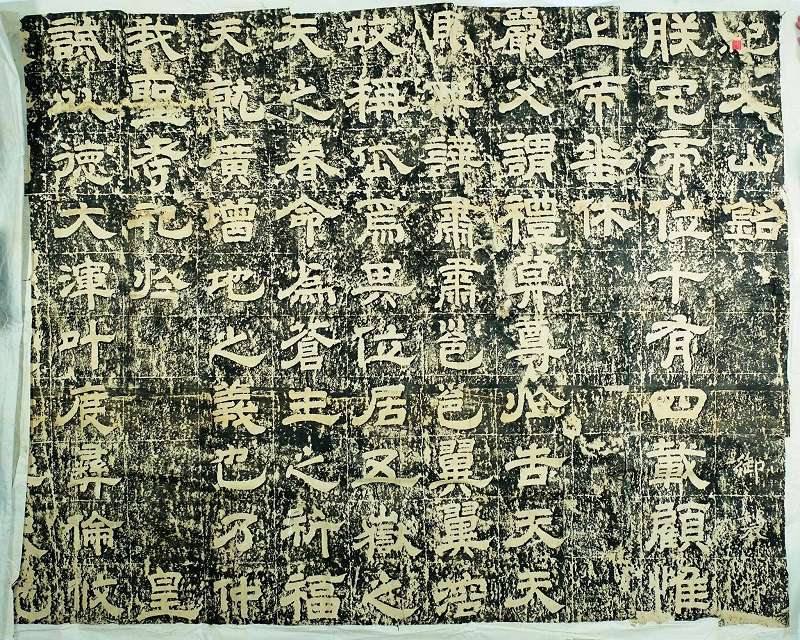 紀太山銘　御製御
朕宅帝位十有四載顧惟
上帝垂休
嚴父謂禮莫尊於告天天
馬無譁肅肅邕邕翼翼溶
故稱岱焉其位居五嶽之
天之眷命為蒼生之祈福
天就廣增地之義也乃仲
我聖考祀於　皇
誠以德大渾叶度彝倫攸